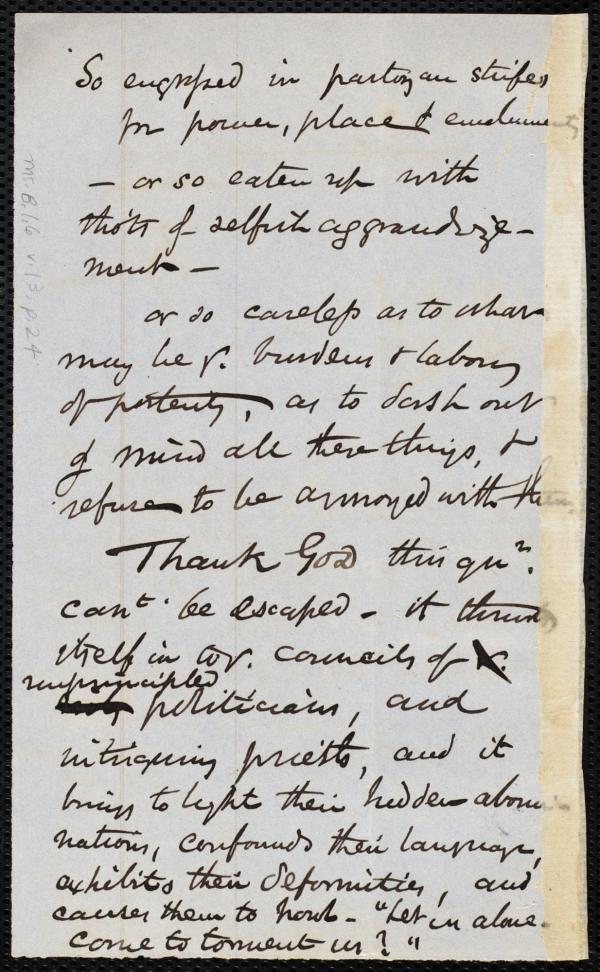 So engrossed in partizan strifes
for power, place & emoluments
– or so eaten up with
tho'ts of selfish aggrandize-
ment –
or so careless as to what
may be y. burdens & labors
of posterity, as to dash out
of mind all these things, &
refuse to be annoyed with them
Thank God this qun.
cant be escaped – it thrusts
itself in to y. councils of y.
unprincipled
politicians, and
intriguing priests, and it
brings to light their hidden abomi-
nations, confounds their language,
exhibits their deformities, and
causes them to howl – "Let us alone.
come to torment us? "
Ms. B. 1.6 v. 13, p. 24